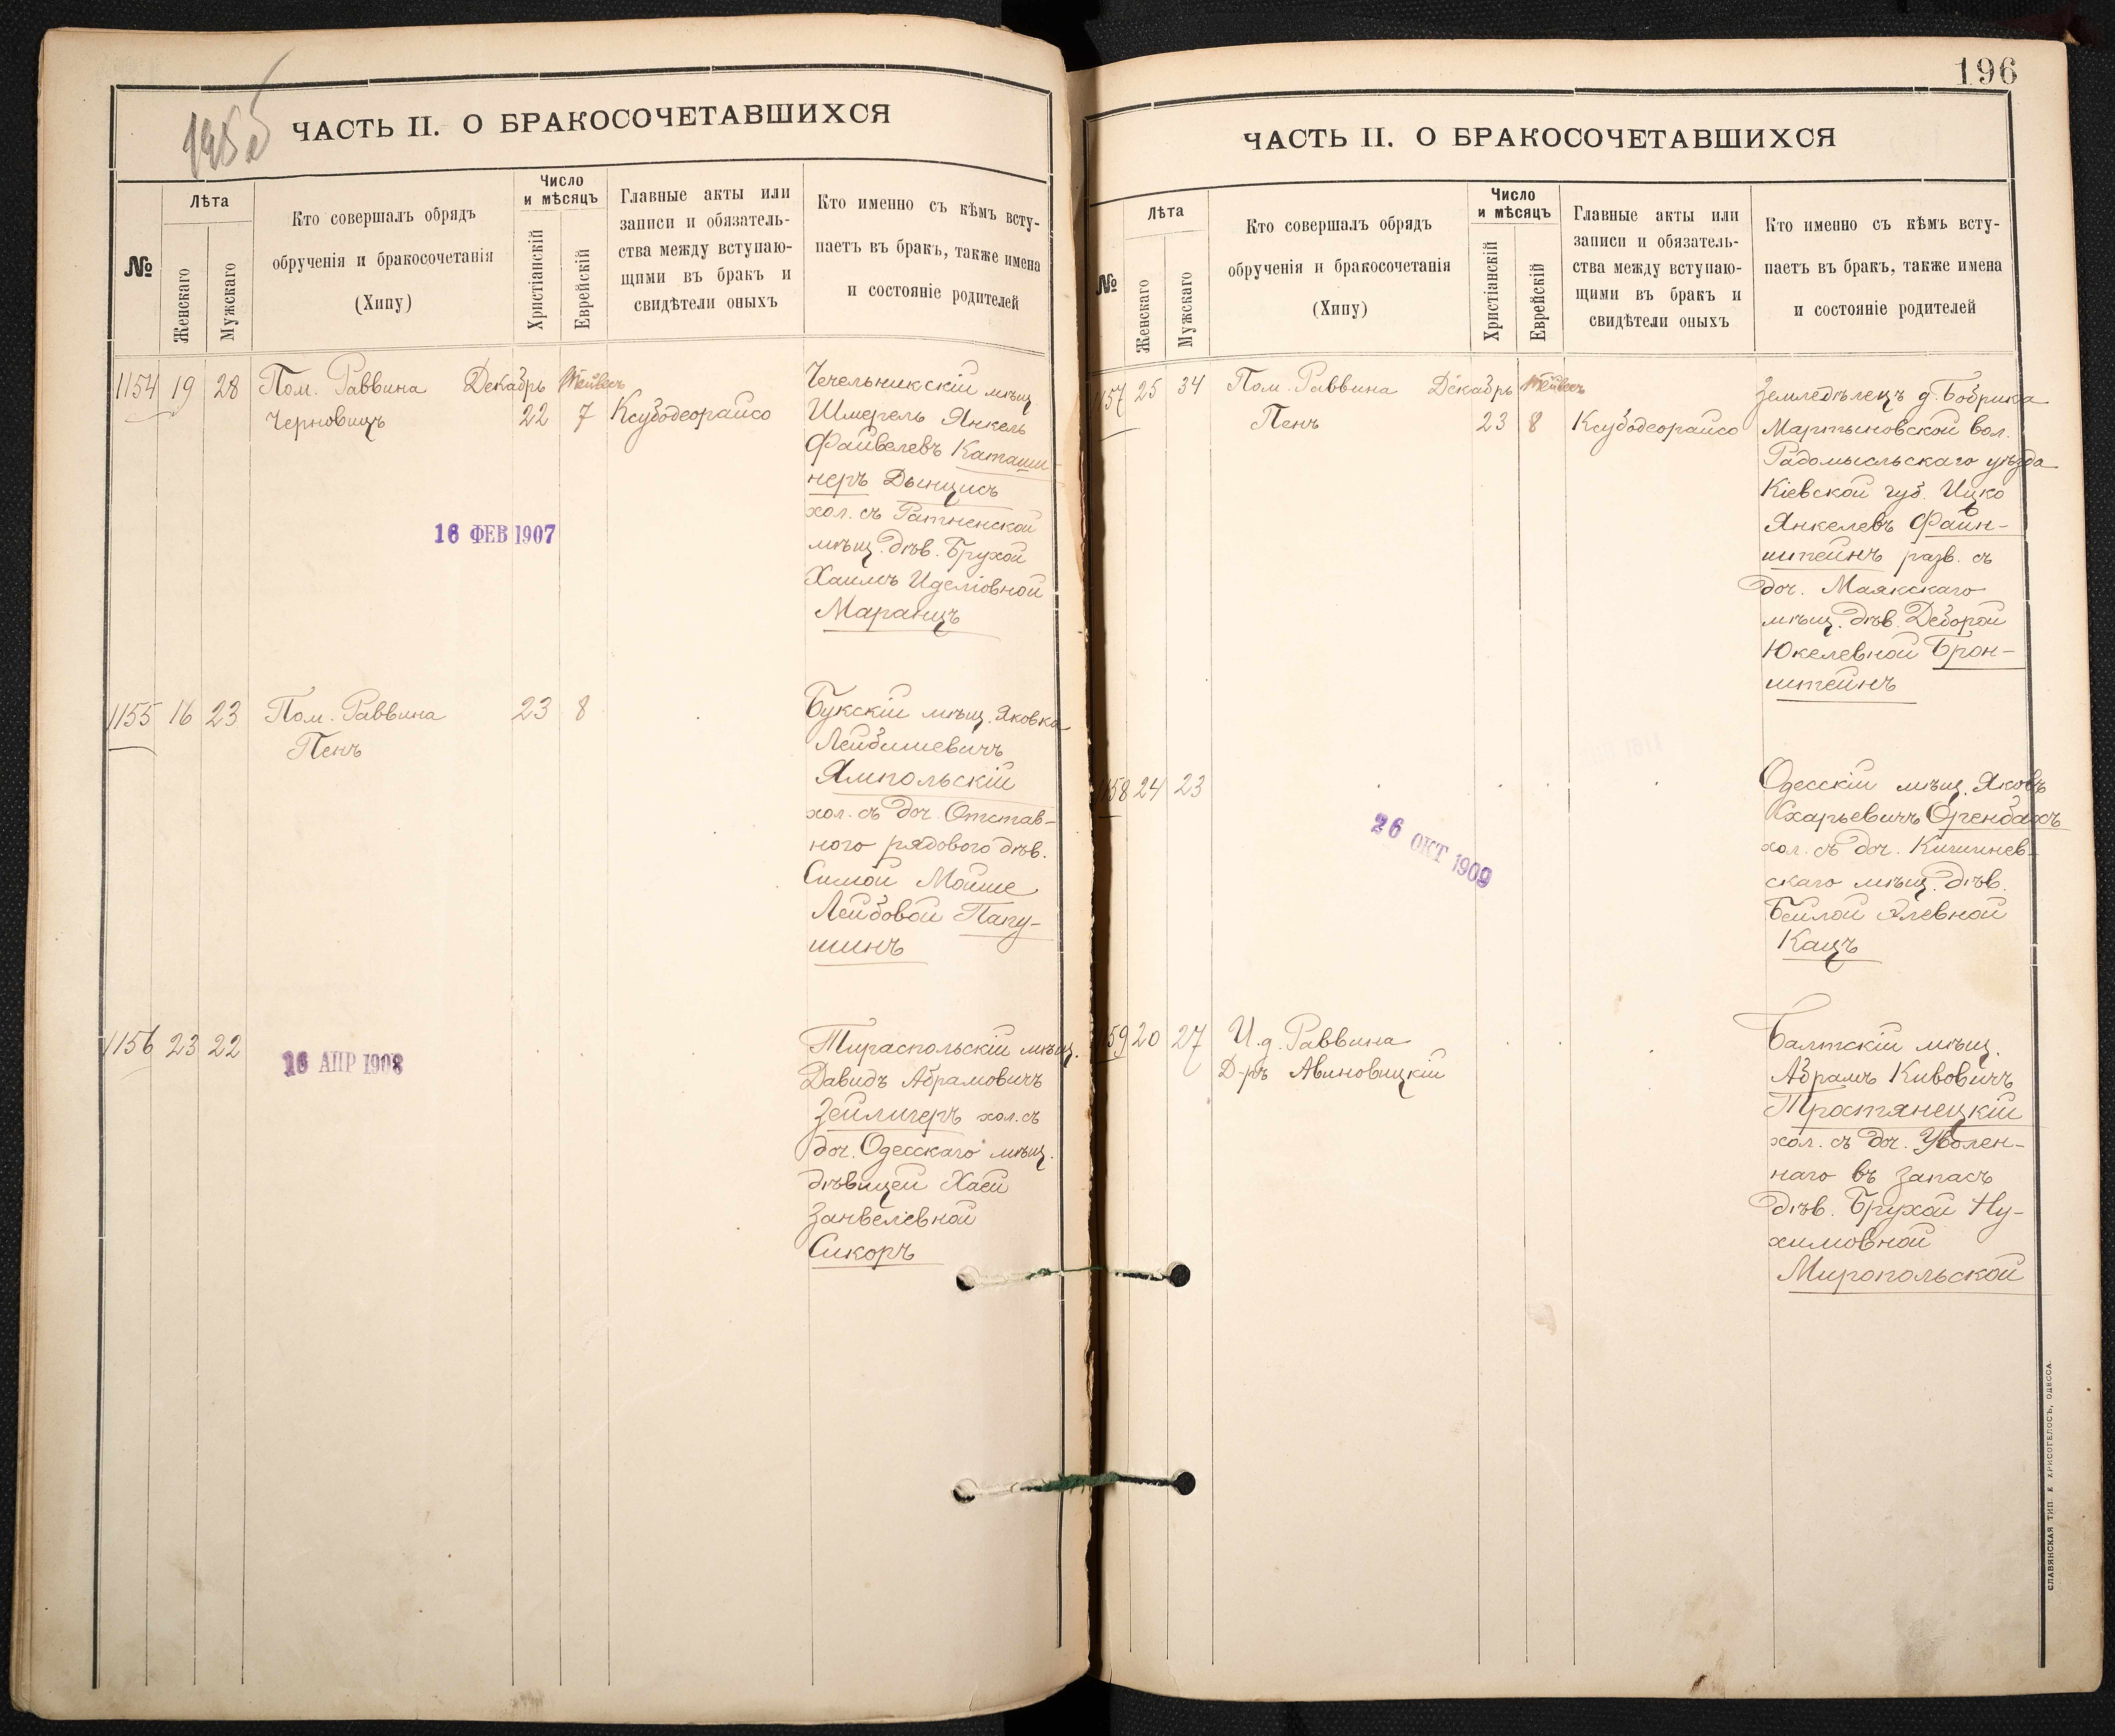 195 б
ЧАСТЬ II. О БРАКОСОЧЕТАВШИХСЯ
№
Лѣта
Женскаго
Мужскаго
Кто совершалъ обрядъ
обрученія и бракосочетанія
(Хипу)
Число
и мѣсяцъ
Христіанскій
Еврейскій
Главные акты или
записи и обязатель-
ства между вступаю-
щими въ бракъ и
свидѣтели оныхъ
Кто именно съ кѣмъ всту-
паетъ въ бракъ, также имена
и состояніе родителей
1154 19 28 Пом. Раввина Декабрь Тейвесъ
Черновицъ 22 7 Ксубодеорайсо
Чечельникскій мѣщ.
Шмерель Янкель
Файвелевъ Каташи-
неръ Дынцисъ
хол. съ Ратненской
мѣщ. дѣв. Брухой
Хаимъ Иделіовной
Маранцъ
16 ФЕВ 1907
1155 16 23 Пом. Раввина 23 8
Пенъ
Букскій мѣщ. Яковка
Лейбишевичъ
Ямпольскій
хол. съ доч. Отстав-
ного рядового дѣв.
Симой Мойше
Лейбовой Папу-
шинъ
1156 23 22
16 АПР 1908
Тираспольскій мѣщ.
Давидъ Абрамовичъ
Зейлигеръ хол. съ
доч. Одесскаго мѣщ.
дѣвицей Хаей
Занвелевной
Сикоръ
196
ЧАСТЬ II. О БРАКОСОЧЕТАВШИХСЯ
№
Лѣта
Женскаго
Мужскаго
Кто совершалъ обрядъ
обрученія и бракосочетанія
(Хипу)
Число
и мѣсяцъ
Христіанскій
Еврейскій
Главные акты или
записи и обязатель-
ства между вступаю-
щими въ бракъ и
свидѣтели оныхъ
Кто именно съ кѣмъ всту-
паетъ въ бракъ, также имена
и состояніе родителей
1157 25 34 Пом. Раввина Декабрь Тейвесъ
Пенъ 23 8 Ксубодеорайсо
Земледѣлецъ д. Бобрика
Мартыновской вол.
Радомысльскаго уѣзда
Кіевской губ. Ицко
Янкелевъ Файн-
штейнъ разв. съ
доч. Маякскаго
мѣщ. дѣв. Деборой
Юкелевной Брон-
штейнъ
1158 24 23
26 ОКТ 1909
Одесскій мѣщ. Яковъ
Схарьевичъ Оренбахъ
хол. съ доч. Кишинев-
скаго мѣщ. дѣв.
Бейлой Элевной
Кацъ
1159 20 27 И.д. Раввина
Д-ръ Авиновицкій
Балтскій мѣщ.
Абрамъ Кивовичъ
Тростянецкій
хол. съ доч. Уволен-
наго въ запасъ
дѣв. Брухой Ну-
химовной
Миропольской
СЛАВЯНСКАЯ ТИП. Е ХРИСОГЕЛОСЪ, ОДЕССА.